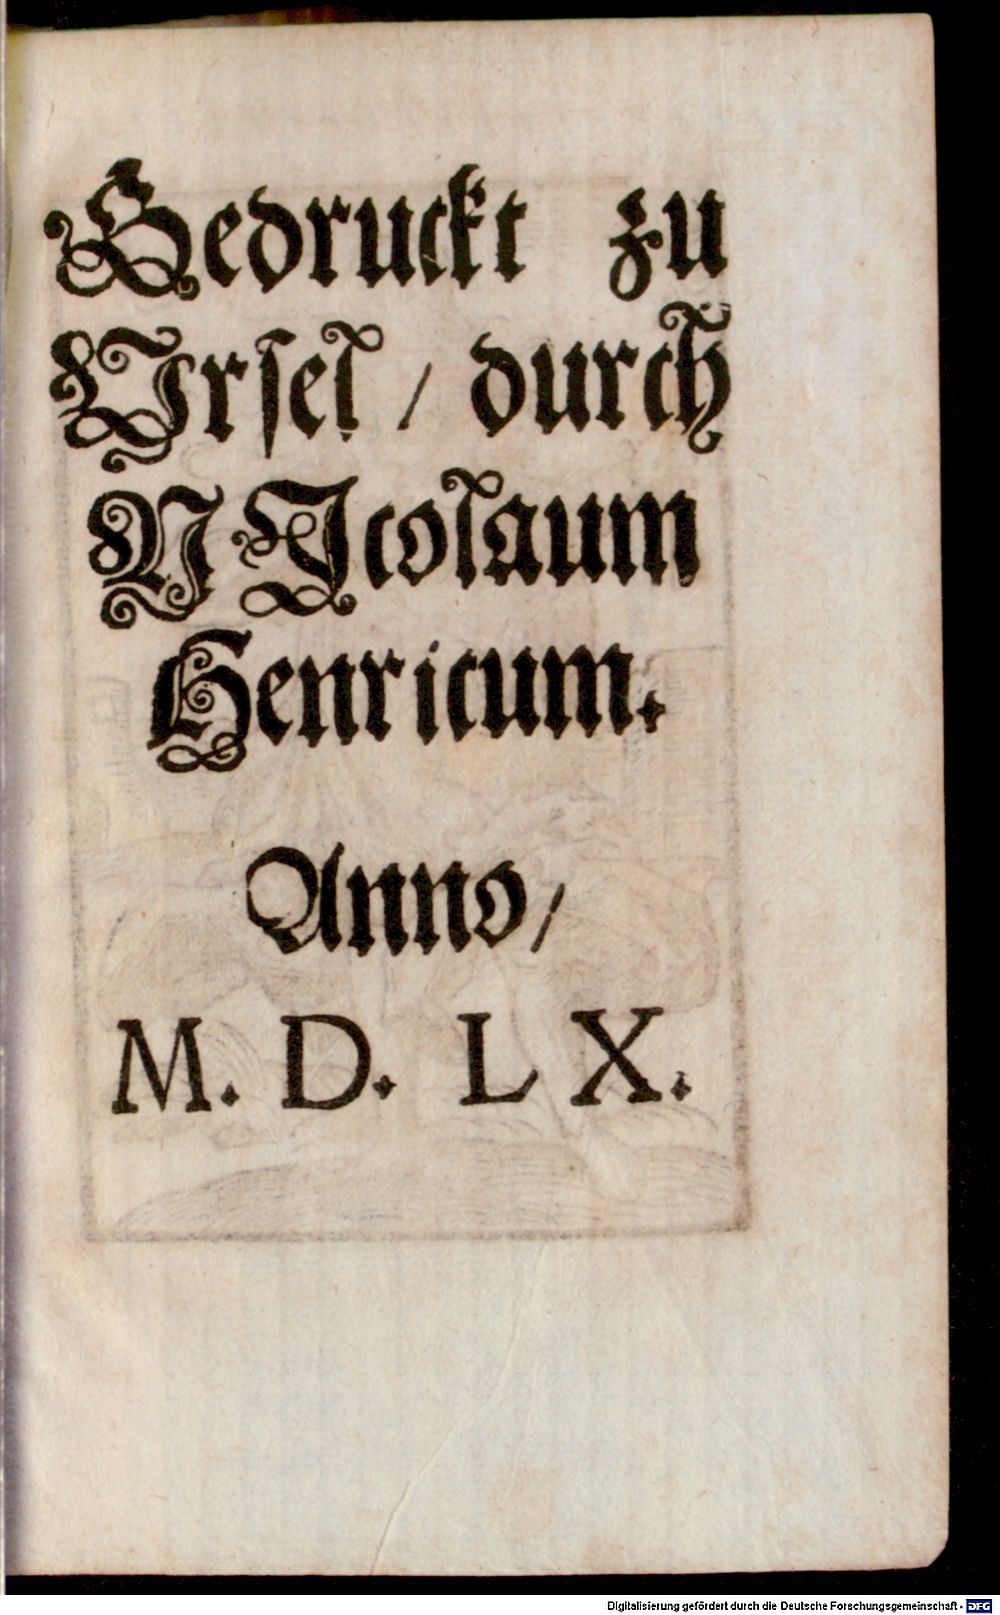 Gedruckt zu
Vrsel / durch
NIcolaum
Henricum.
Anno /
M. D. L X.
Digitalisierung gefördert durch die Deutsche Forschungsgemeinschaft - DFG